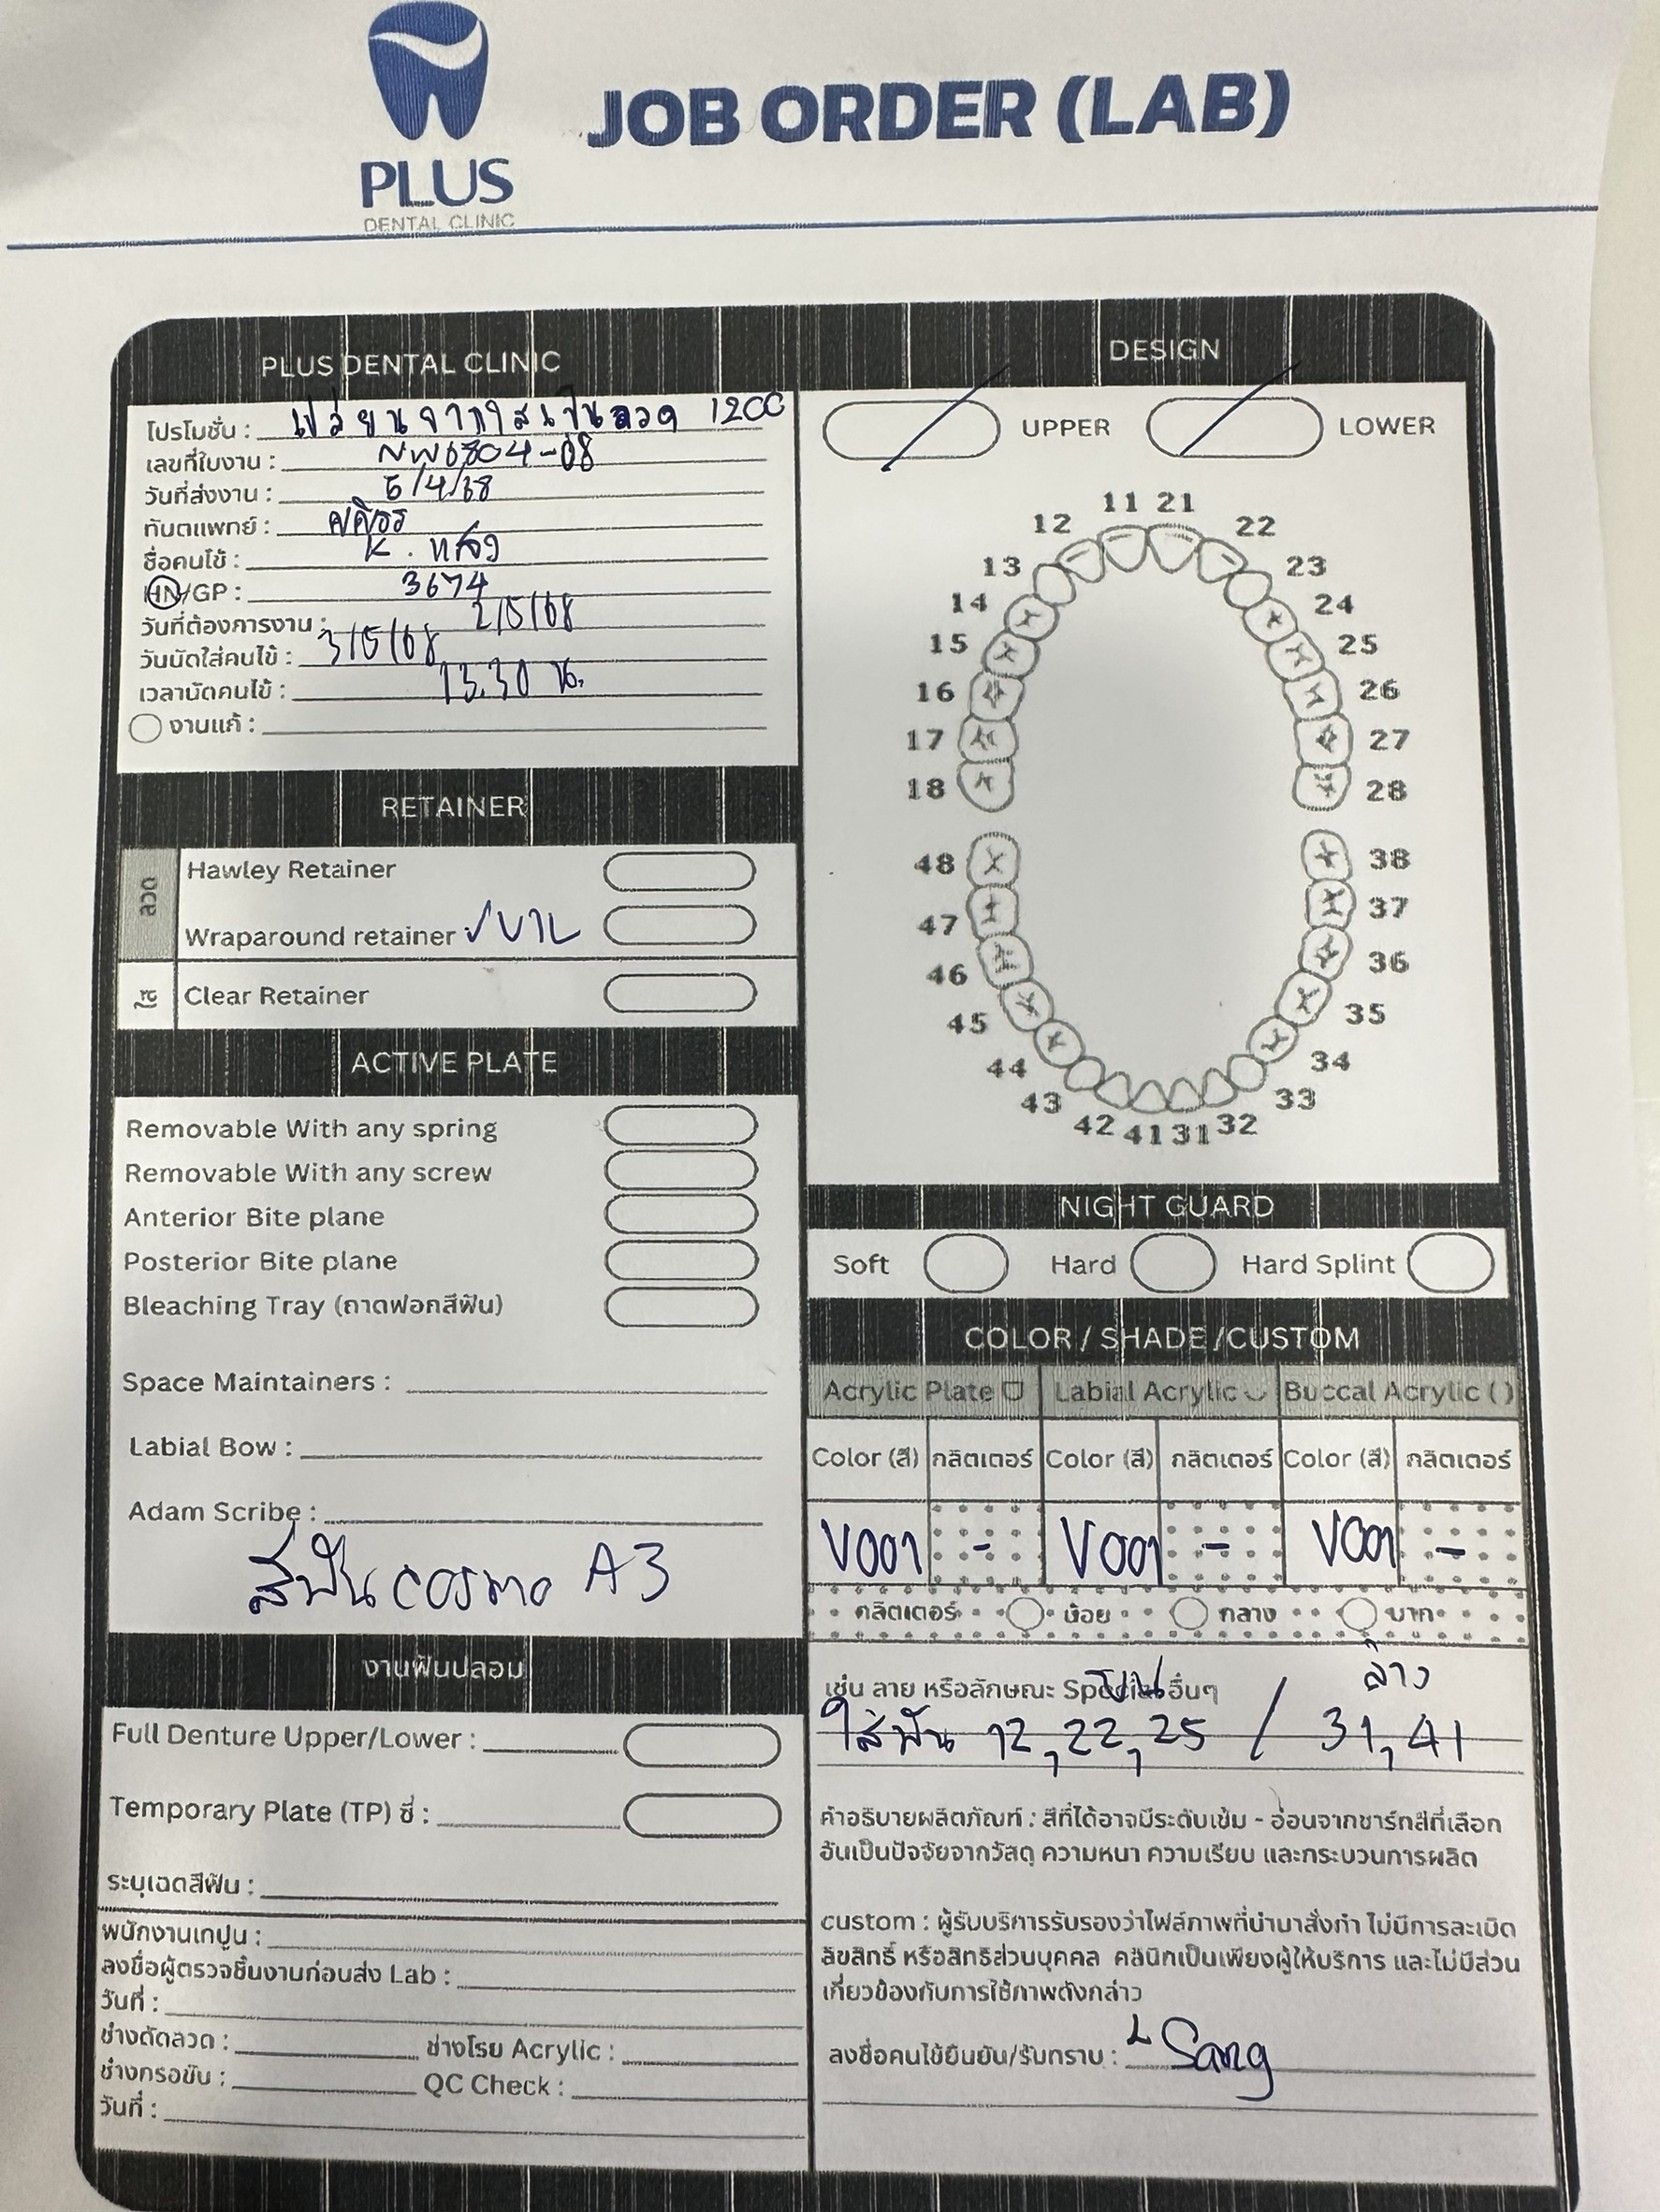 PLUS
DENTAL CLINIC
JOB ORDER (LAB)
PLUS DENTAL CLINIC
โปรโมชั่น : เปลี่ยนจากใสเป็นลวด 1200
เลขที่ใบงาน : NW6804-08
วันที่ส่งงาน : 5/4/68
ทันตแพทย์ :
ชื่อคนไข้ : K. แสง
HN/GP : 3674
วันที่ต้องการงาน : 2/5/68
วันนัดใส่คนไข้ : 3/5/68
เวลานัดคนไข้ : 13.30 น.
งานแก้ :
RETAINER
ลวด
Hawley Retainer
Wraparound retainer ✓ บาน
ใส
Clear Retainer
ACTIVE PLATE
Removable With any spring
Removable With any screw
Anterior Bite plane
Posterior Bite plane
Bleaching Tray (ถาดฟอกสีฟัน)
Space Maintainers :
Labial Bow :
Adam Scribe :
สีฟัน cosmo A3
งานฟันปลอม
Full Denture Upper/Lower :
Temporary Plate (TP) ซี่ :
ระบุเฉดสีฟัน :
พนักงานเทปูน :
ลงชื่อผู้ตรวจชิ้นงานก่อนส่ง Lab :
วันที่ :
ช่างดัดลวด : ช่างโรย Acrylic :
ช่างกรอขัด : QC Check :
วันที่ :
DESIGN
UPPER LOWER
11 21
12 22
13 23
14 24
15 25
16 26
17 27
18 28
48 38
47 37
46 36
45 35
44 34
43 33
42 41 31 32
NIGHT GUARD
Soft Hard Hard Splint
COLOR / SHADE /CUSTOM
Acrylic Plate Labial Acrylic Buccal Acrylic ( )
Color (สี) กลิตเตอร์ Color (สี) กลิตเตอร์ Color (สี) กลิตเตอร์
V001 - V001 - V001 -
กลิตเตอร์ น้อย กลาง มาก
เช่น ลาย หรือลักษณะ Special อื่นๆ
บน ล่าง
ใส่ฟัน 12, 22, 25 / 31, 41
คำอธิบายผลิตภัณฑ์ : สีที่ได้อาจมีระดับเข้ม - อ่อนจากชาร์ทสีที่เลือก
อันเป็นปัจจัยจากวัสดุ ความหนา ความเรียบ และกระบวนการผลิต
custom : ผู้รับบริการรับรองว่าไฟล์ภาพที่นำมาสั่งทำ ไม่มีการละเมิด
ลิขสิทธิ์ หรือสิทธิส่วนบุคคล คลินิกเป็นเพียงผู้ให้บริการ และไม่มีส่วน
เกี่ยวข้องกับการใช้ภาพดังกล่าว
ลงชื่อคนไข้ยืนยัน/รับทราบ : Sang